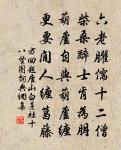 六老臞儒十二僧
柴桑醉士肯為朋
葫蘆自與葫蘆纏
更要閒人纏葛藤
方回題廬山白蓮社十
八賢圖詞典網集